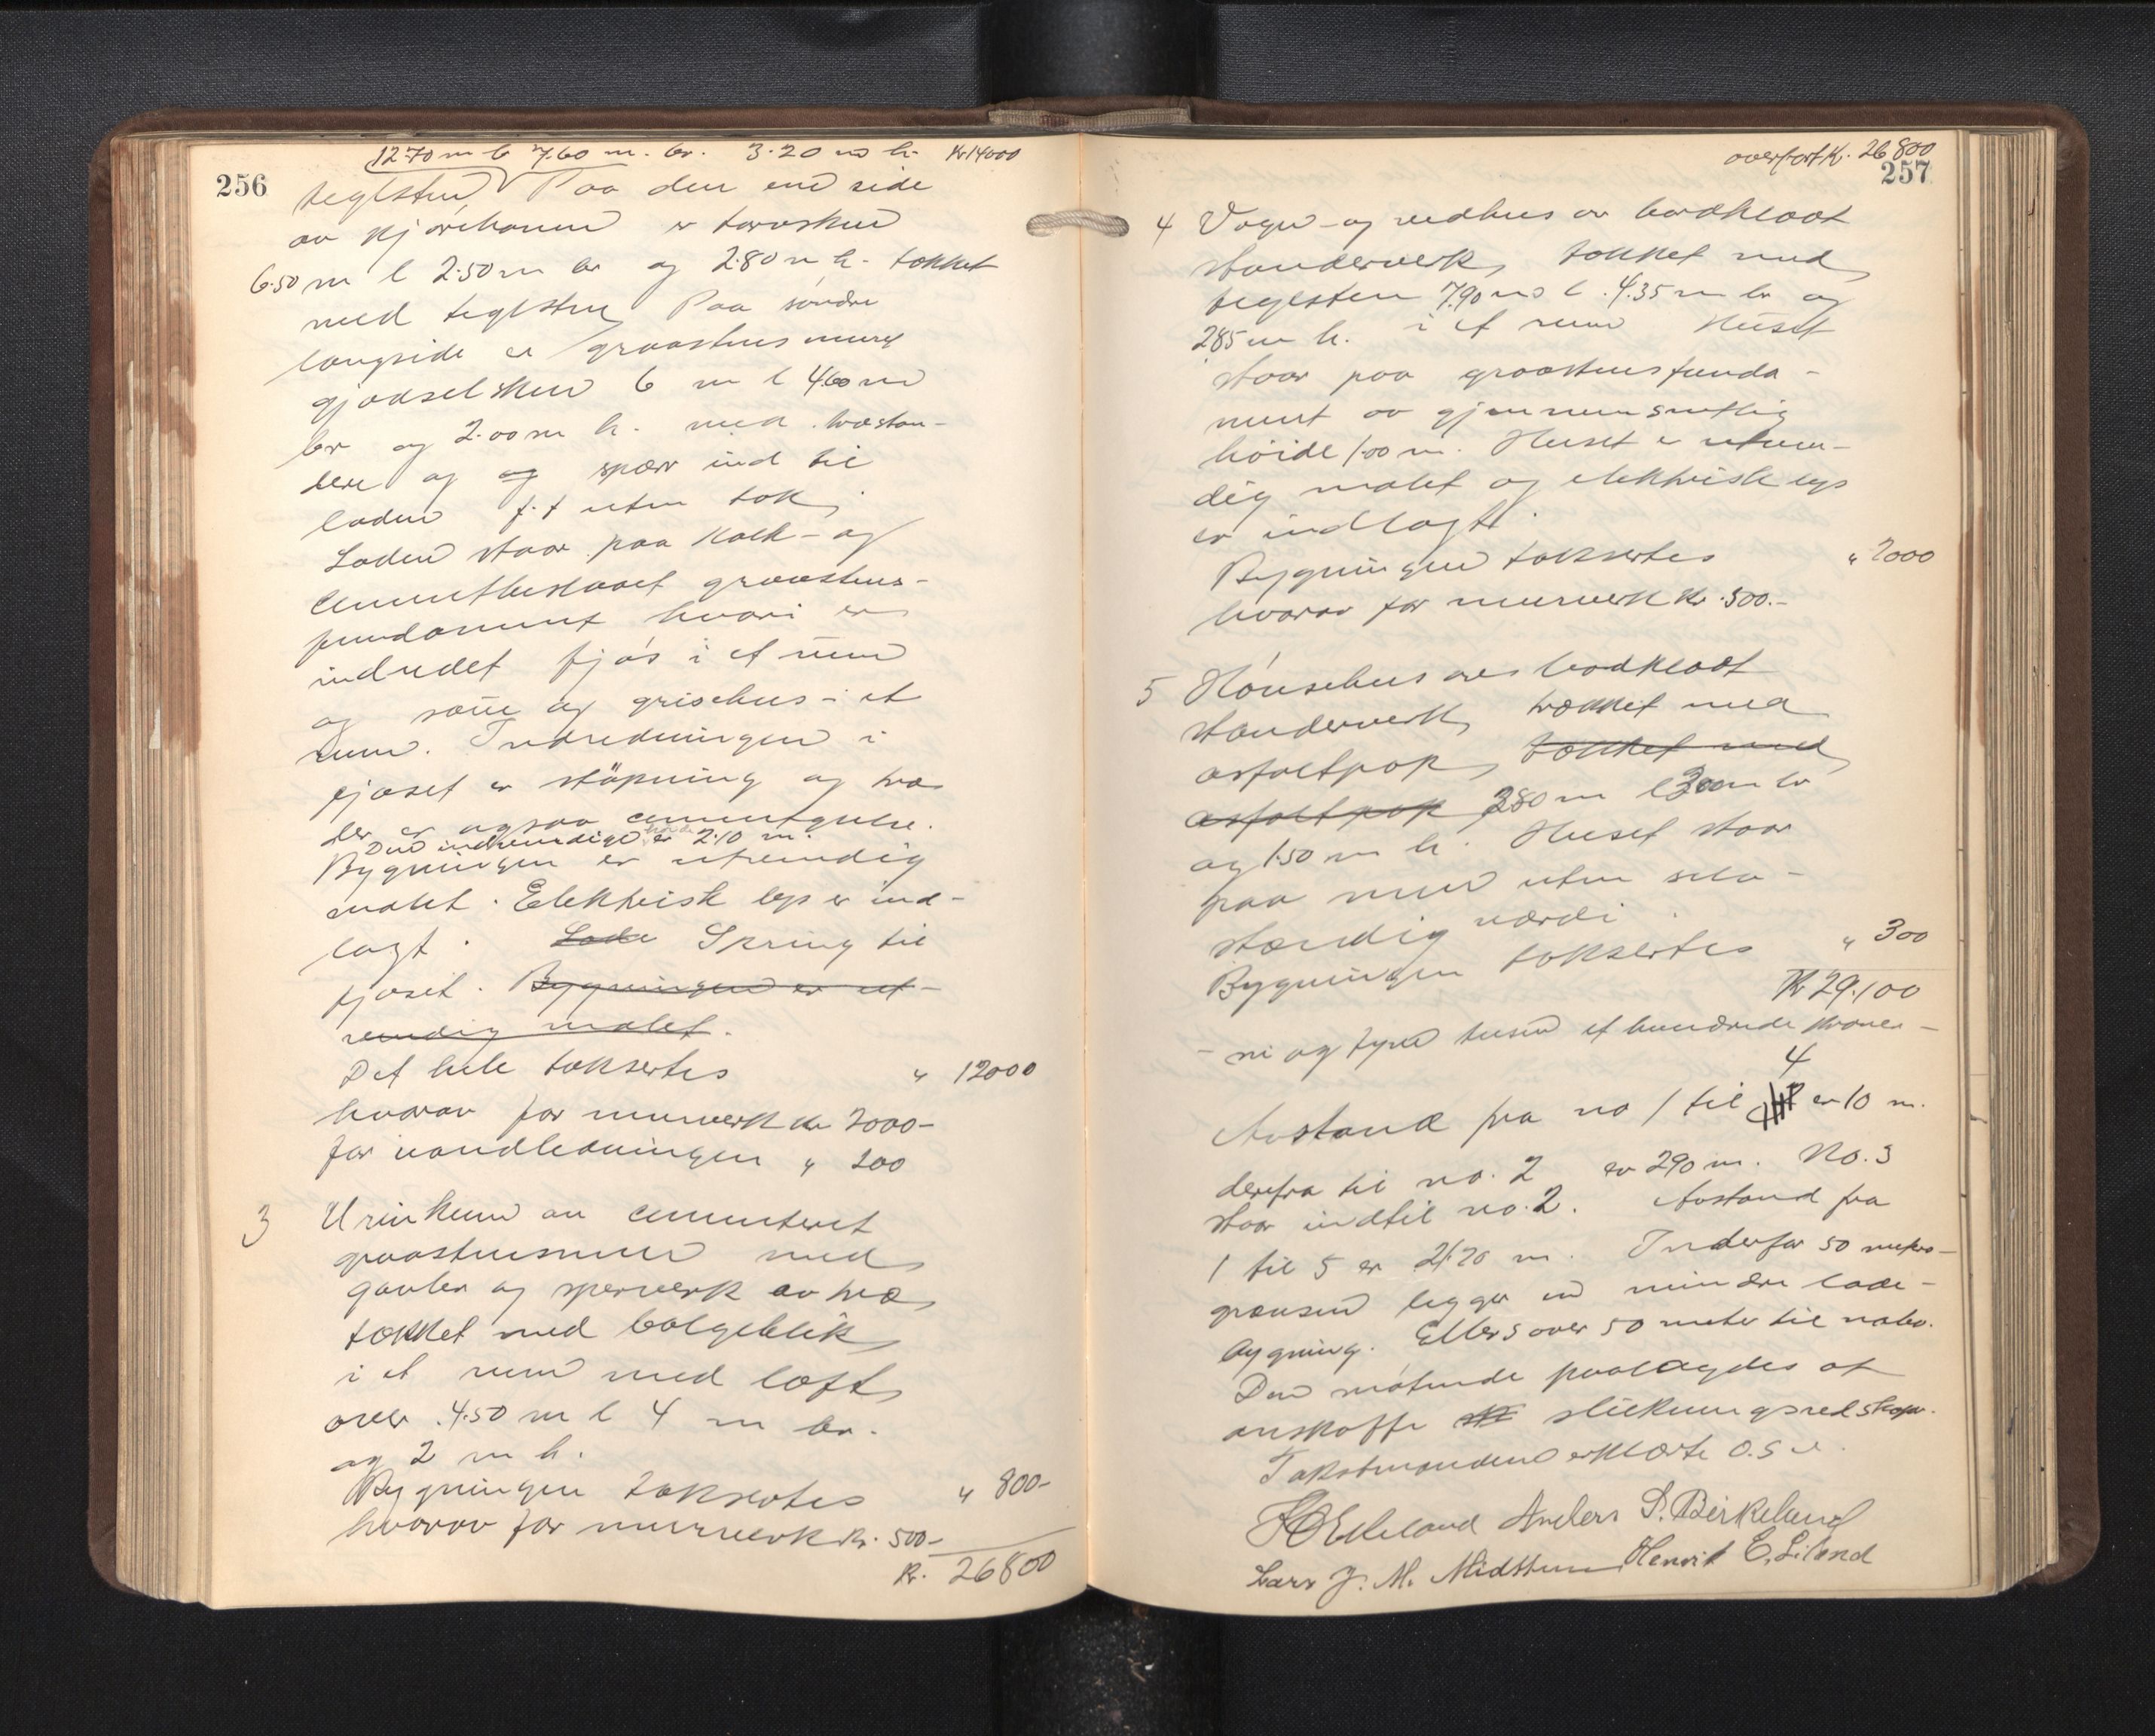 12.70 m l 7.60 m. br. 3.20 m h. Kr 14000
256
teglsten, Paa den ene side
av kjörebanen er torvskur
6.50 m l 2.50 m br og 2.80 m h. tækket
med teglsten, Paa söndre
langside er graastensmuret
gjödselskur 6 m l 4.60 m
br og 2.00 m h. med træstan-
dere og og sperr ind til
laden f.t uten tak,
Laden staar paa kalk- og
cementbeslaaet graastens-
fundament hvori er
indredet fjös i et rum
og saue og grisehus i et
rum. Indredningen i
fjøset er stöpning og træ
der er ogsaa cementgulv.
Den indvendige höide er 2.10 m.
Bygningen er utvendig
malet. Elektrisk lys er ind-
lagt. Lade Spring til
fjöset. Bygningen er ut-
vendig malet.
Det hele taksertes " 12000
hvorav for murverk kr 2000-
for vandledningen " 200
3 Urinkum av cementeret
graastensmur med
gavler og sperverk av træ,
tækket med bølgeblik,
i et rum med loft,
over 4.50 m l 4 m br.
og 2 m h.
Bygningen taksertes " 800-
hvorav for murverk kr. 500-
Kr. 26800
overfört Kr. 26800
257
4 Vogn- og vedhus av bordklædt
standerverk, tækket med
teglsten 7.90 m l. 4.35 m br og
2.85 m h. i et rum Huset
staar paa graastensfunda-
ment av gjennemsnitlig
höide 1.00 m. Huset er utven-
dig malet og elektrisk lys
er indlagt.
Bygningen taksertes " 2000
hvorav for murverk kr. 500.-
5 Hönsehus av bordklædt
standerverk, trækket med
asfaltpap, tækket med
asfaltpap 3.80 m l 3.00 m br
og 1.50 m h. Huset staar
paa mur uten selv-
stændig værdi.
Bygningen taksertes " 300
Kr 29.100
- ni og tyve tusen et hundrede kroner -
4
Avstand fra no 1 til er 10 m.
derfra til no. 2 er 290 m. No. 3
staar indtil no. 2. Avstand fra
1 til 5 er 21.70 m. Indenfor 50 meters-
grænsen ligger en mindre lade-
bygning. Ellers over 50 meter til nabo.
Den mötende paalagdes at
anskaffe slukningsredskap.
Takstmændene erklærte o.s.v.
Anders S. Birkeland
Lars J. M. Midttun Henrik E. Liland